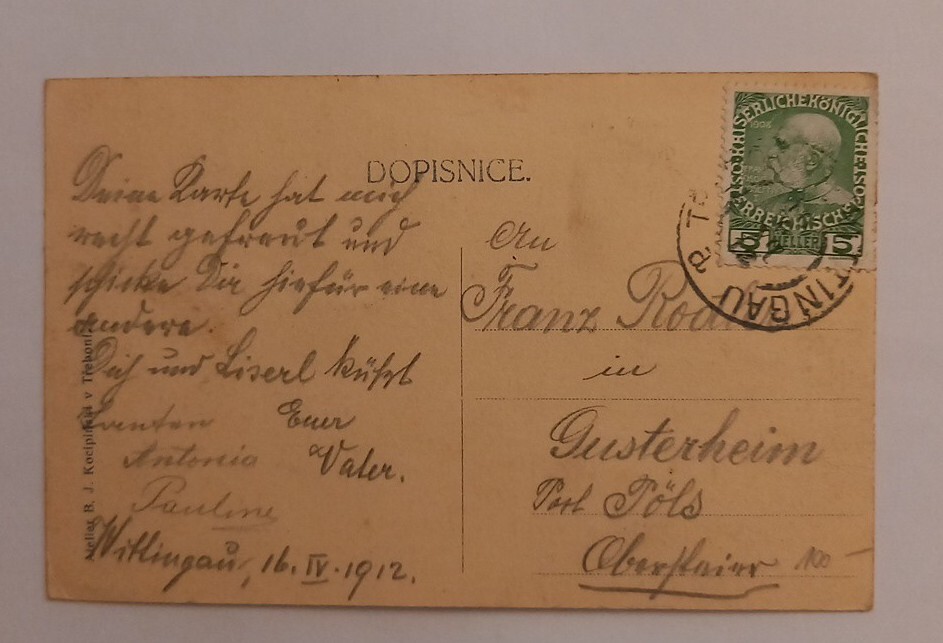 DOPISNICE.
Deine Karte hat mich
recht gefreut und
schicke Dir hiefür eine
andere.
Dich und Liserl küßt
Tanten Euer
Antonia Vater.
Pauline
Wittingau, 16. IV. 1912.
Atelier B. J. Kocipinski v Třeboni.
An
Franz
in
Gusterheim
Post Pöls
Obersteier
100 –
1908
KAISERLICHE KÖNIGLICHE
ÖSTERREICHISCHE
5 HELLER 5
TINGAU